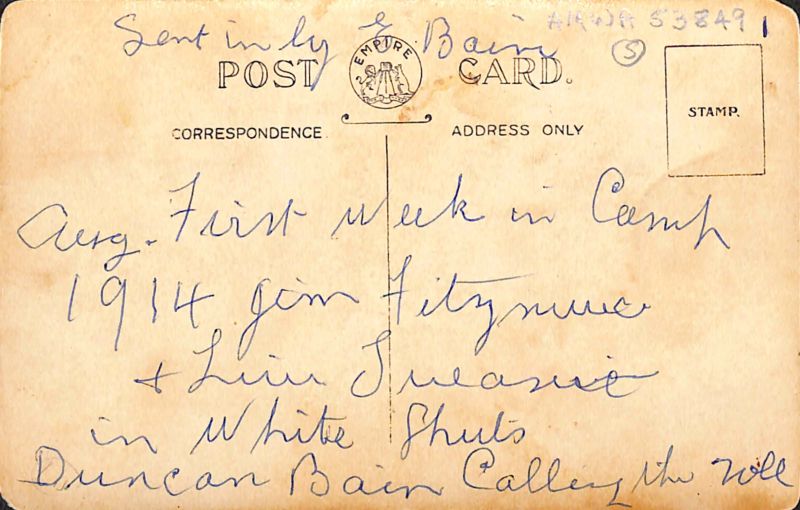 Sent in by E Bain
AIAWA 53849 1
5
EMPIRE
POST CARD.
STAMP.
CORRESPONDENCE.
ADDRESS ONLY
Aug. First Week in Camp
1914 Jim
+
in White Shuts
Duncan Bain Calling the Roll